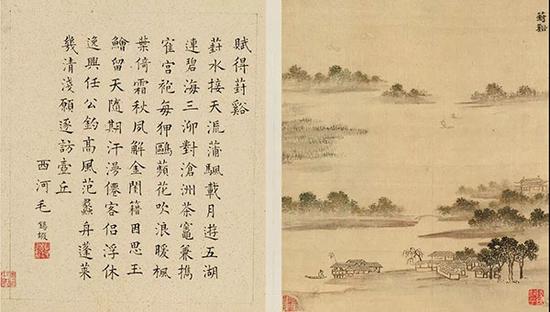 葑谿
賦得葑谿
葑水接天流蒲颿載月遊五湖
連碧海三泖對滄洲茶竈兼攜
隺宮袍每狎鷗蘋花吹浪暖楓
葉倚霜秋夙解金閨籍因思玉
鱠留天隨期汗漫僊客侶浮休
逸興任公釣高風范蠡舟蓬萊
幾清淺願遂訪壺丘
西河毛錫